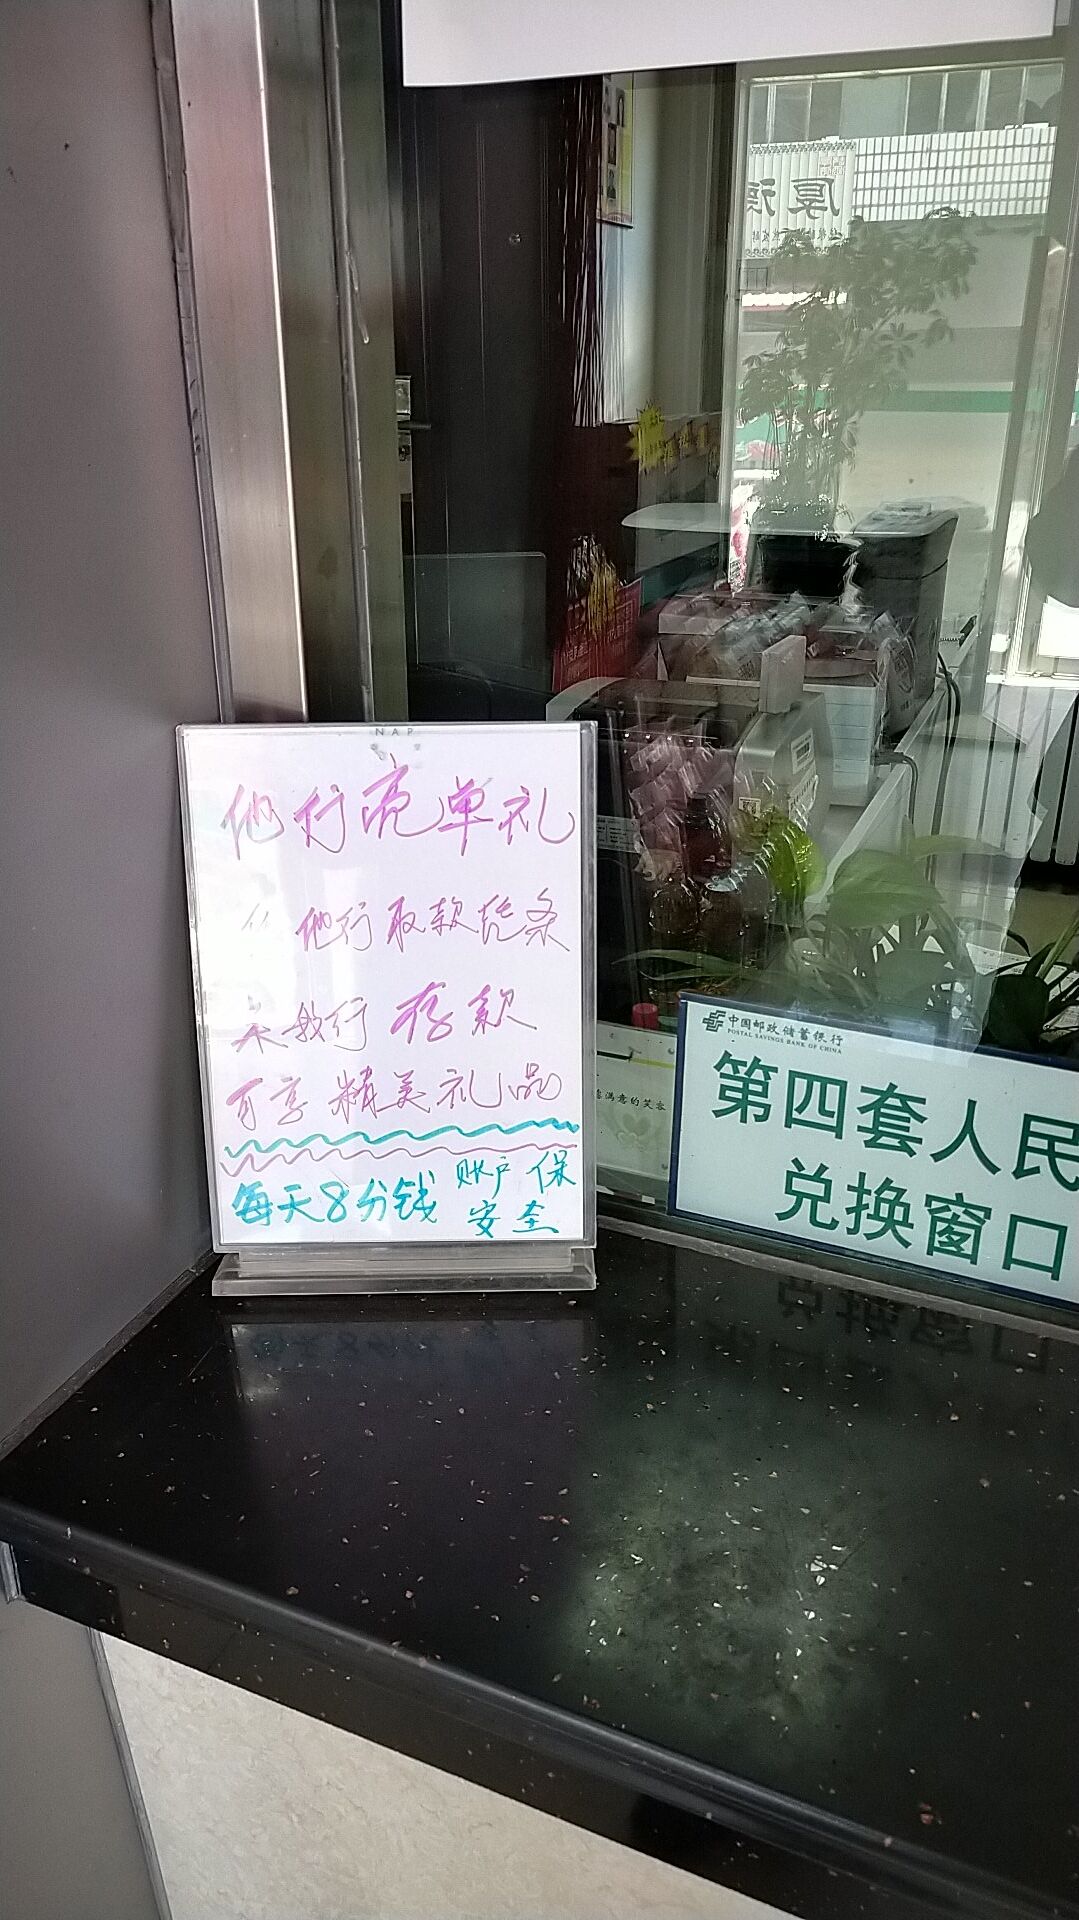 厚
NAP
他行亮单礼
他行取款凭条
来我行存款
可享精美礼品
每天8分钱 账户保
安全
中国邮政储蓄银行
POSTAL SAVINGS BANK OF CHINA
第四套人民
兑换窗口
满意的笑容